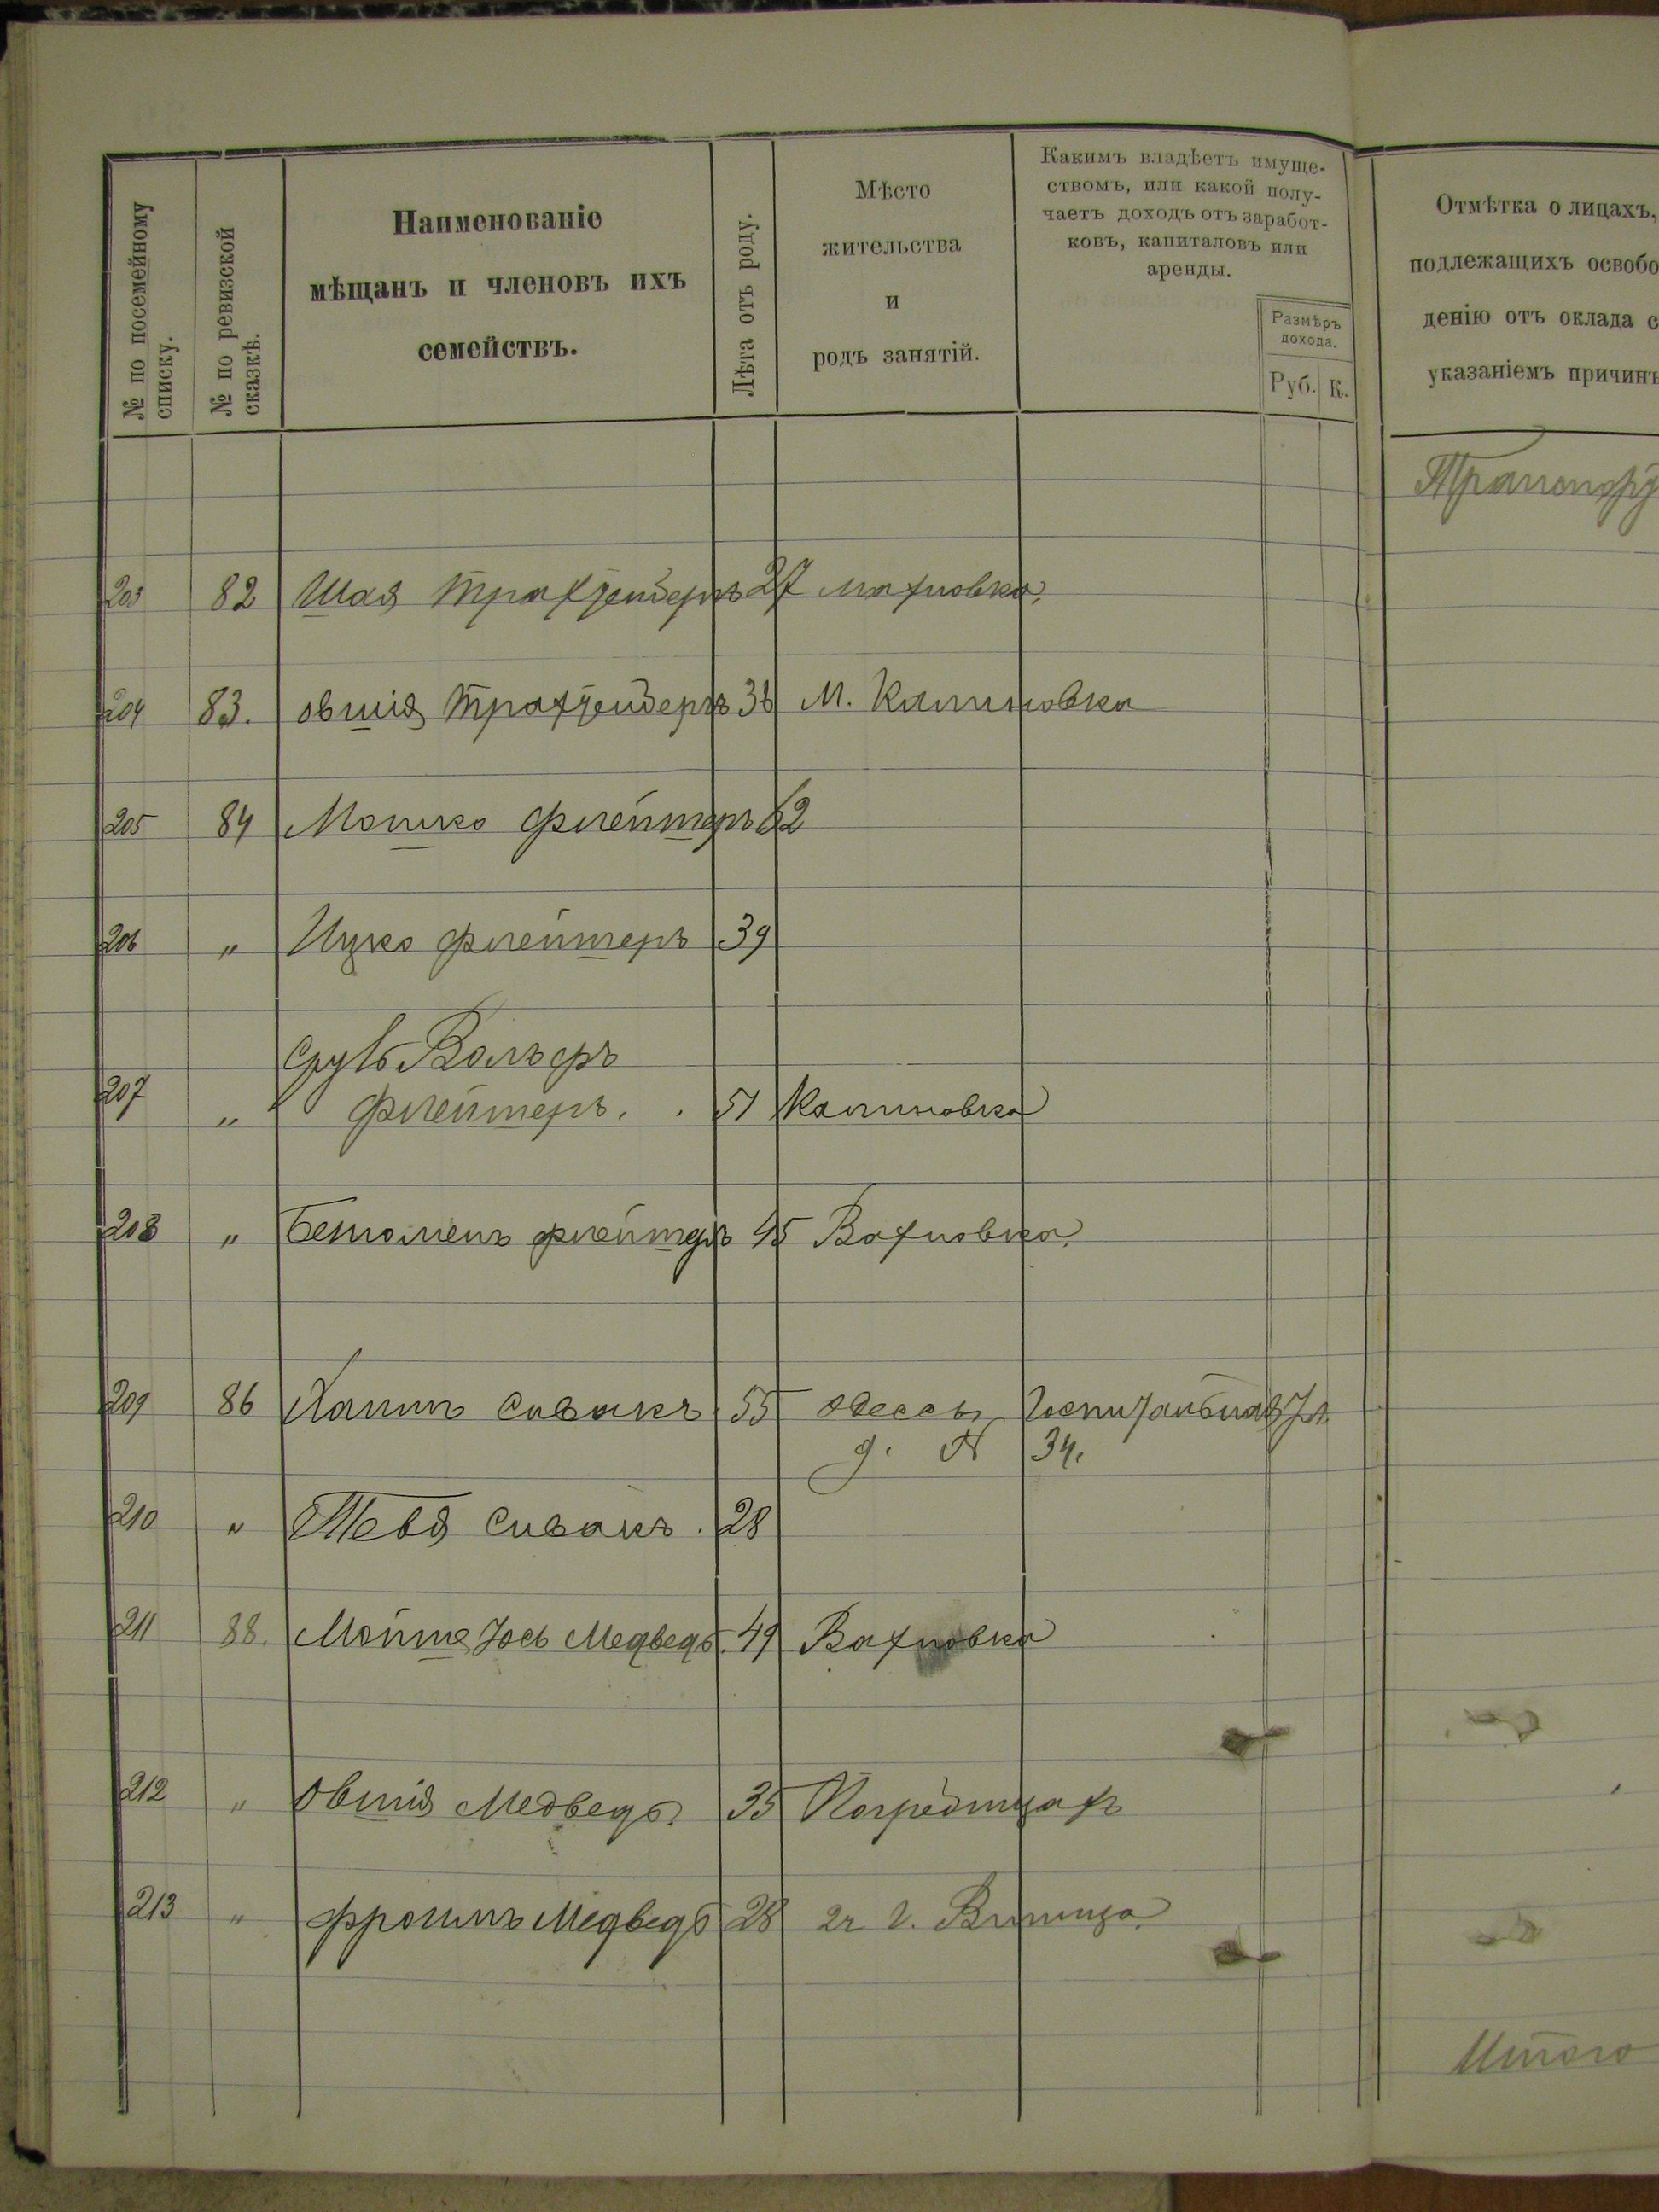 № по посемейному
списку.
№ по ревизской
сказкѣ.
Наименованіе
мѣщанъ и членовъ ихъ
семействъ.
Лѣта отъ роду.
Мѣсто
жительства
и
родъ занятій.
Какимъ владѣетъ имуще-
ствомъ, или какой полу-
чаетъ доходъ отъ заработ-
ковъ, капиталовъ или
аренды.
Размѣръ
дохода.
Руб. К.
Отмѣтка о лицахъ,
подлежащихъ освобо
денію отъ оклада с
указаніемъ причинъ
203 82 Шая 27 Махновка.
204 83. Овшія М. Калиновка
205 84 Мошко Флейтеръ 62
206 „ Ицко Флейтеръ 39
Сруль Вольфъ
207 „ Флейтеръ. 51 Калиновка
208 „ Флейтеръ 45 Вахновка.
209 86 Хаимъ Сивакъ 55 Одесса, Госпитальная Ул.
д. № 34.
210 „ Тевя Сивакъ. 28
211 88. Мойше Іось Медведь. 49 Вахновка
212 „ Овшія Медведь. 35 Погребищахъ
213 „ Фроимъ Медведь 28 г. Винница.
Итого